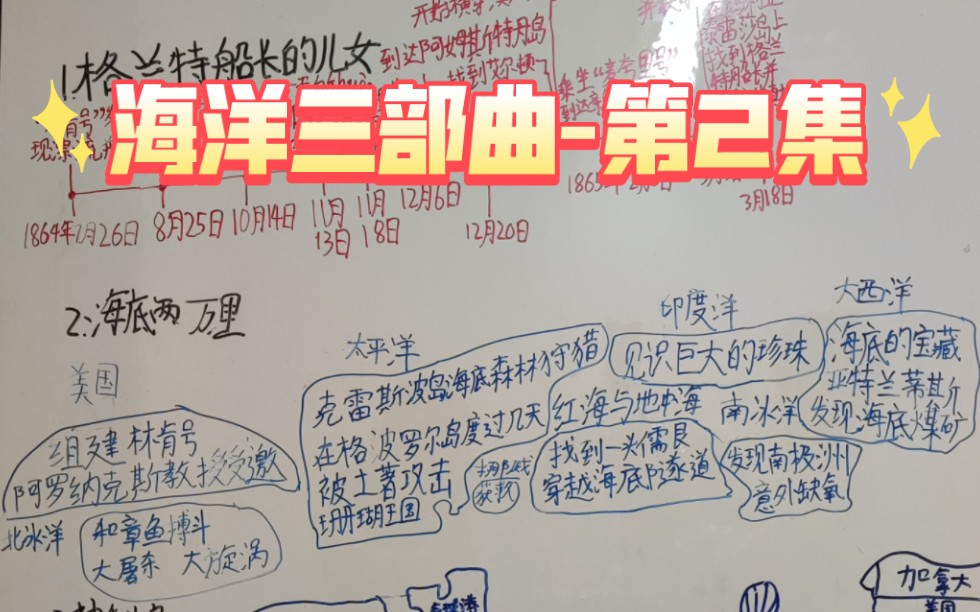 海洋三部曲-第2集
1.格兰特船长的儿女
到达阿姆斯特丹岛
找到艾尔顿
1864年7月26日
8月25日
10月14日
11月13日
11月18日
12月6日
12月20日
3月18日
2.海底两万里
美国
组建林肯号
阿罗纳克斯教授受邀
太平洋
克雷斯波岛海底森林狩猎
在格波罗尔岛度过几天
被土著攻击
珊瑚王国
印度洋
见识巨大的珍珠
红海与地中海
找到一头儒艮
穿越海底隧道
南冰洋
发现南极洲
意外缺氧
大西洋
海底的宝藏
亚特兰蒂斯
发现海底煤矿
北冰洋
和章鱼搏斗
大屠杀 大旋涡
加拿大
美国